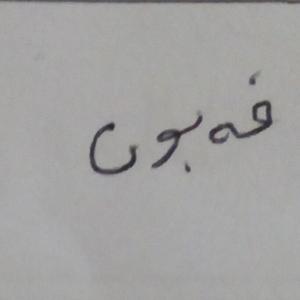 فەبون